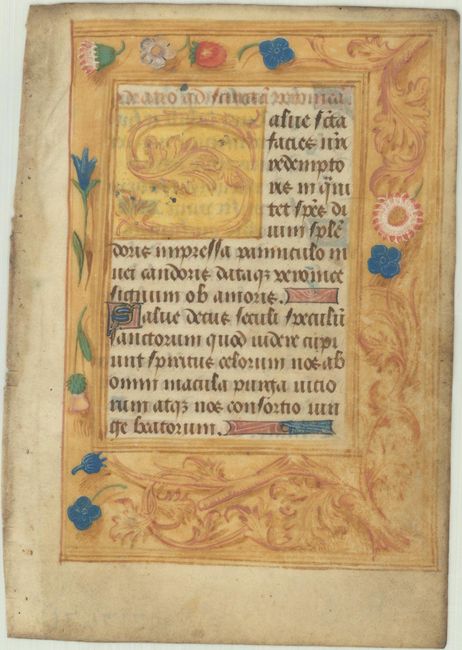 Oratio ad sanctā veronicā
Salue scā
facies nrī
redempto
ris in q̄ ni
tet spēs di
uini splē
doris impressa panniculo ni
uei candoris dataqȝ veronice
signum ob amoris.
Salue decus seculi speculū
sanctorum quod videre cupi
unt spiritus celorum nos ab
omni macula purga vicio
rum atqȝ nos consortio iun
ge beatorum.